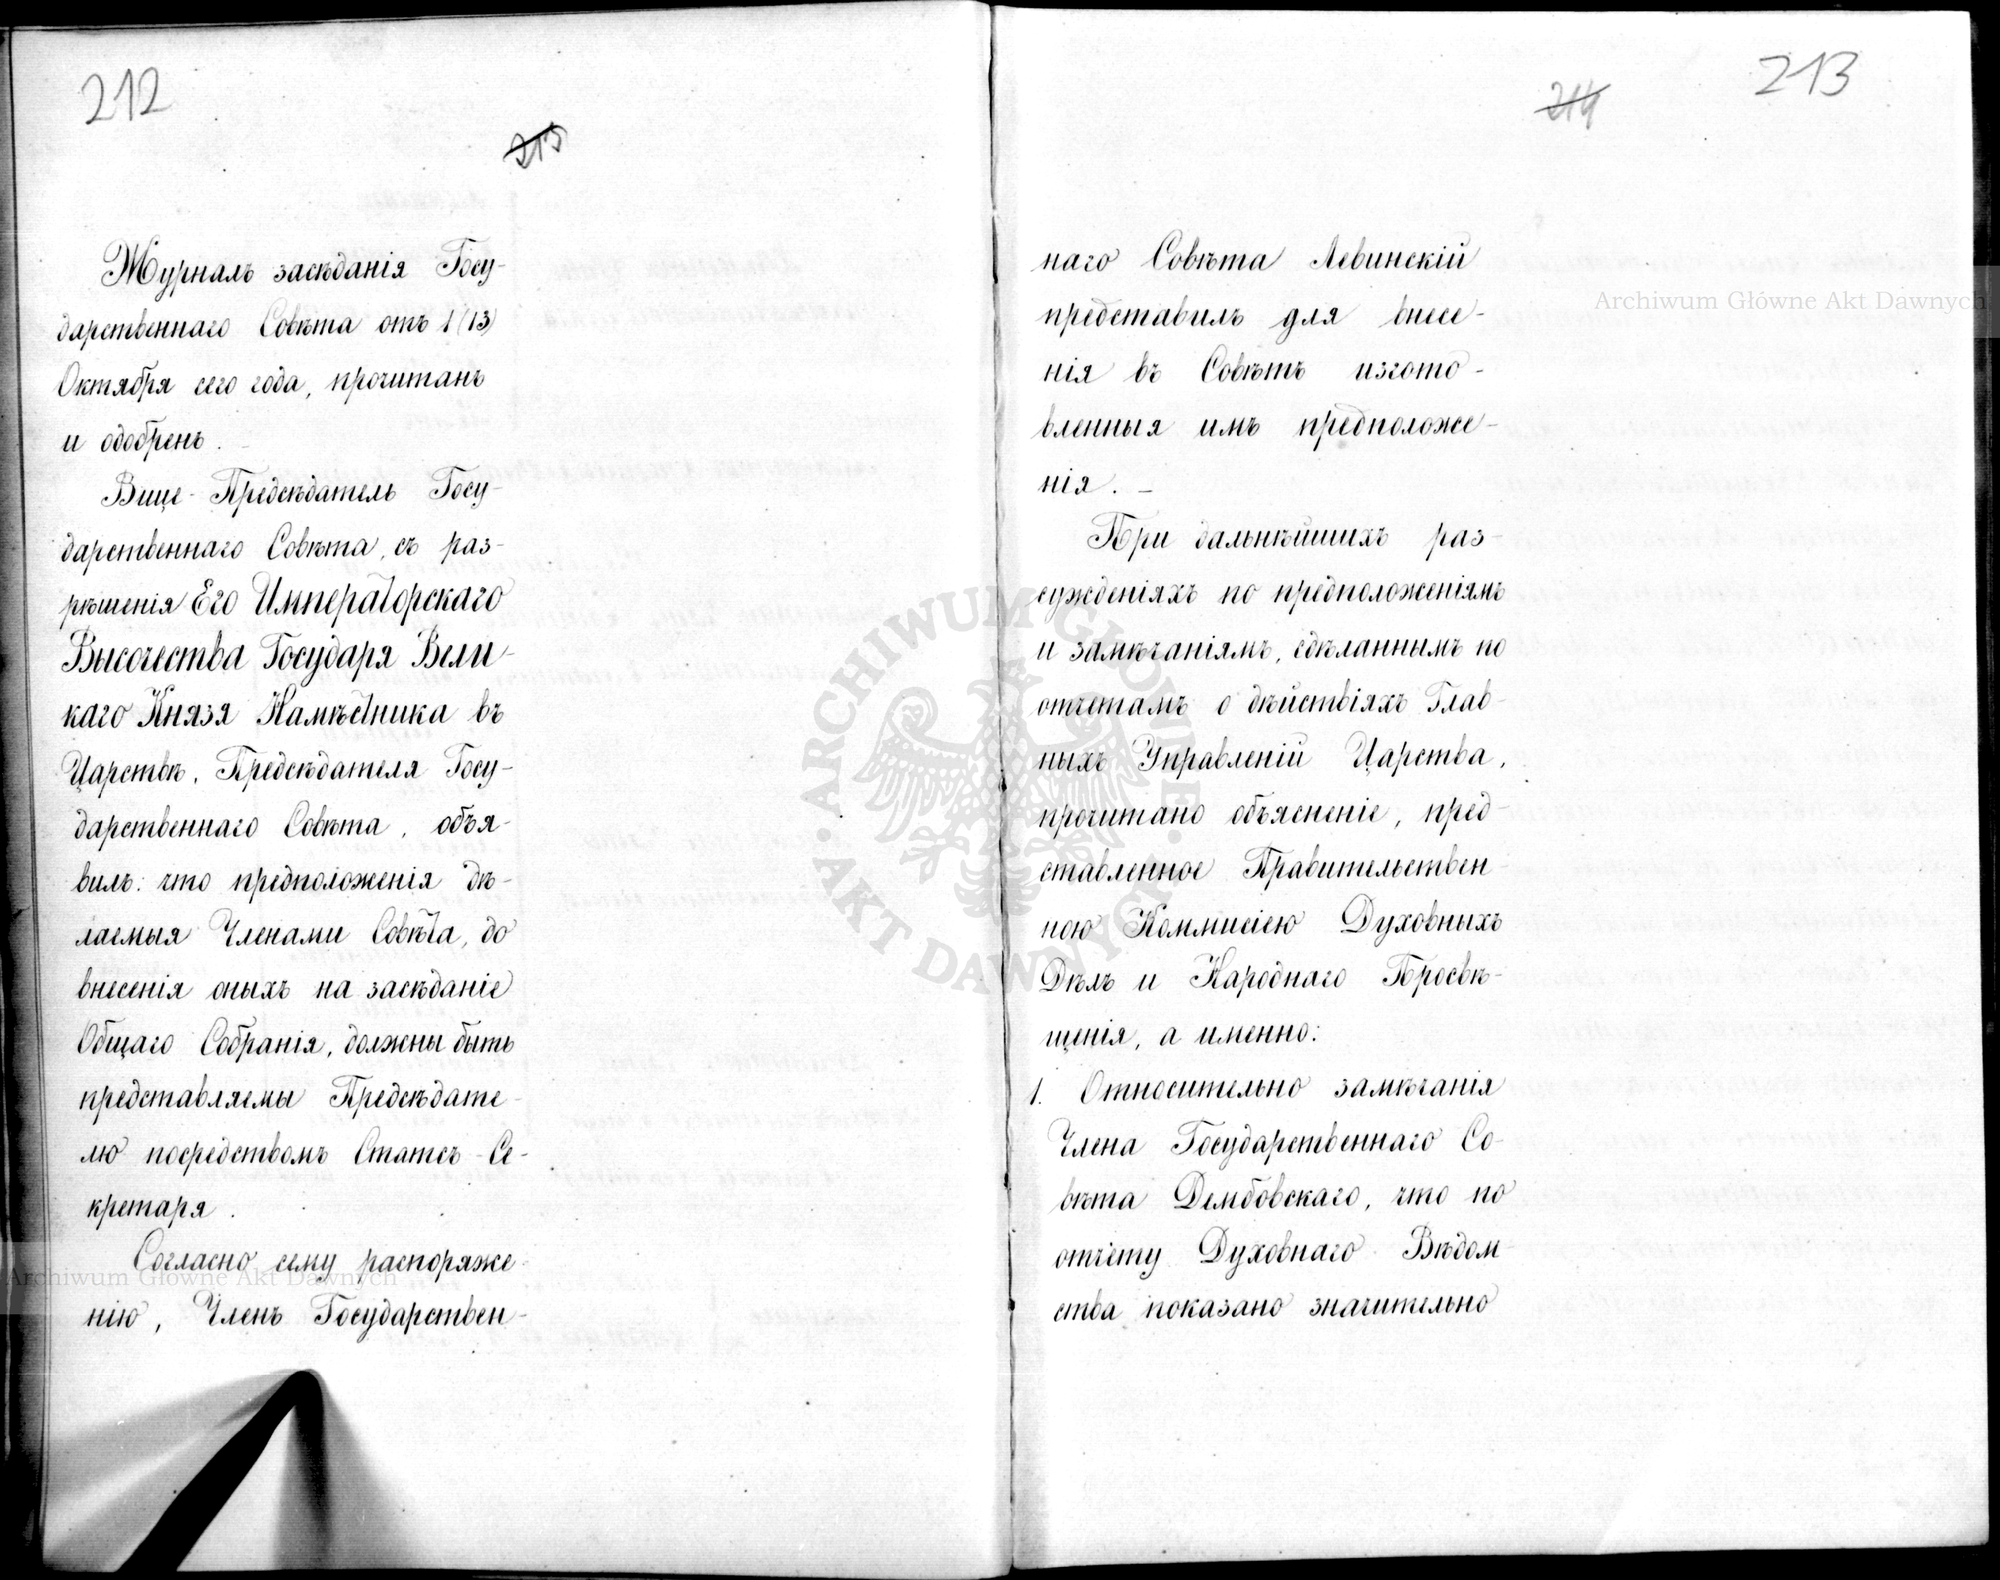 212
213
Журналъ засѣданія Госу-
дарственнаго Совѣта отъ 1/13)
Октября сего года, прочитанъ
и одобренъ. –
Вице-Предсѣдатель Госу-
дарственнаго Совѣта, съ раз-
рѣшенія Его Императорскаго
Высочества Государя Вели-
каго Князя Намѣстника въ
Царствѣ, Предсѣдателя Госу-
дарственнаго Совѣта, объя-
вилъ: что предположенія дѣ-
лаемыя Членами Совѣта, до
внесенія оныхъ на засѣданіе
Общаго Собранія, должны быть
представляемы Предсѣдате-
лю посредствомъ Статсъ-Се-
кретаря.
Согласно сему распоряже-
нію, Членъ Государствен-
213
214
наго Совѣта Левинскій
представилъ для внесе-
нія въ Совѣтъ изгото-
вленныя имъ предположе-
нія. –
При дальнѣйшихъ раз-
сужденіяхъ по предположеніямъ
и замѣчаніямъ, сдѣланнымъ по
отчетамъ о дѣйствіяхъ Глав-
ныхъ Управленій Царства,
прочитано объясненіе, пред-
ставленное Правительствен-
ною Коммисіею Духовныхъ
Дѣлъ и Народнаго Просвѣ-
щенія, а именно:
1. Относительно замѣчанія
Члена Государственнаго Со-
вѣта Дембовскаго, что по
отчету Духовнаго Вѣдом-
ства показано значительно
Archiwum Główne Akt Dawnych
Archiwum Główne Akt Dawnych
ARCHIWUM GŁÓWNE
AKT DAWNYCH